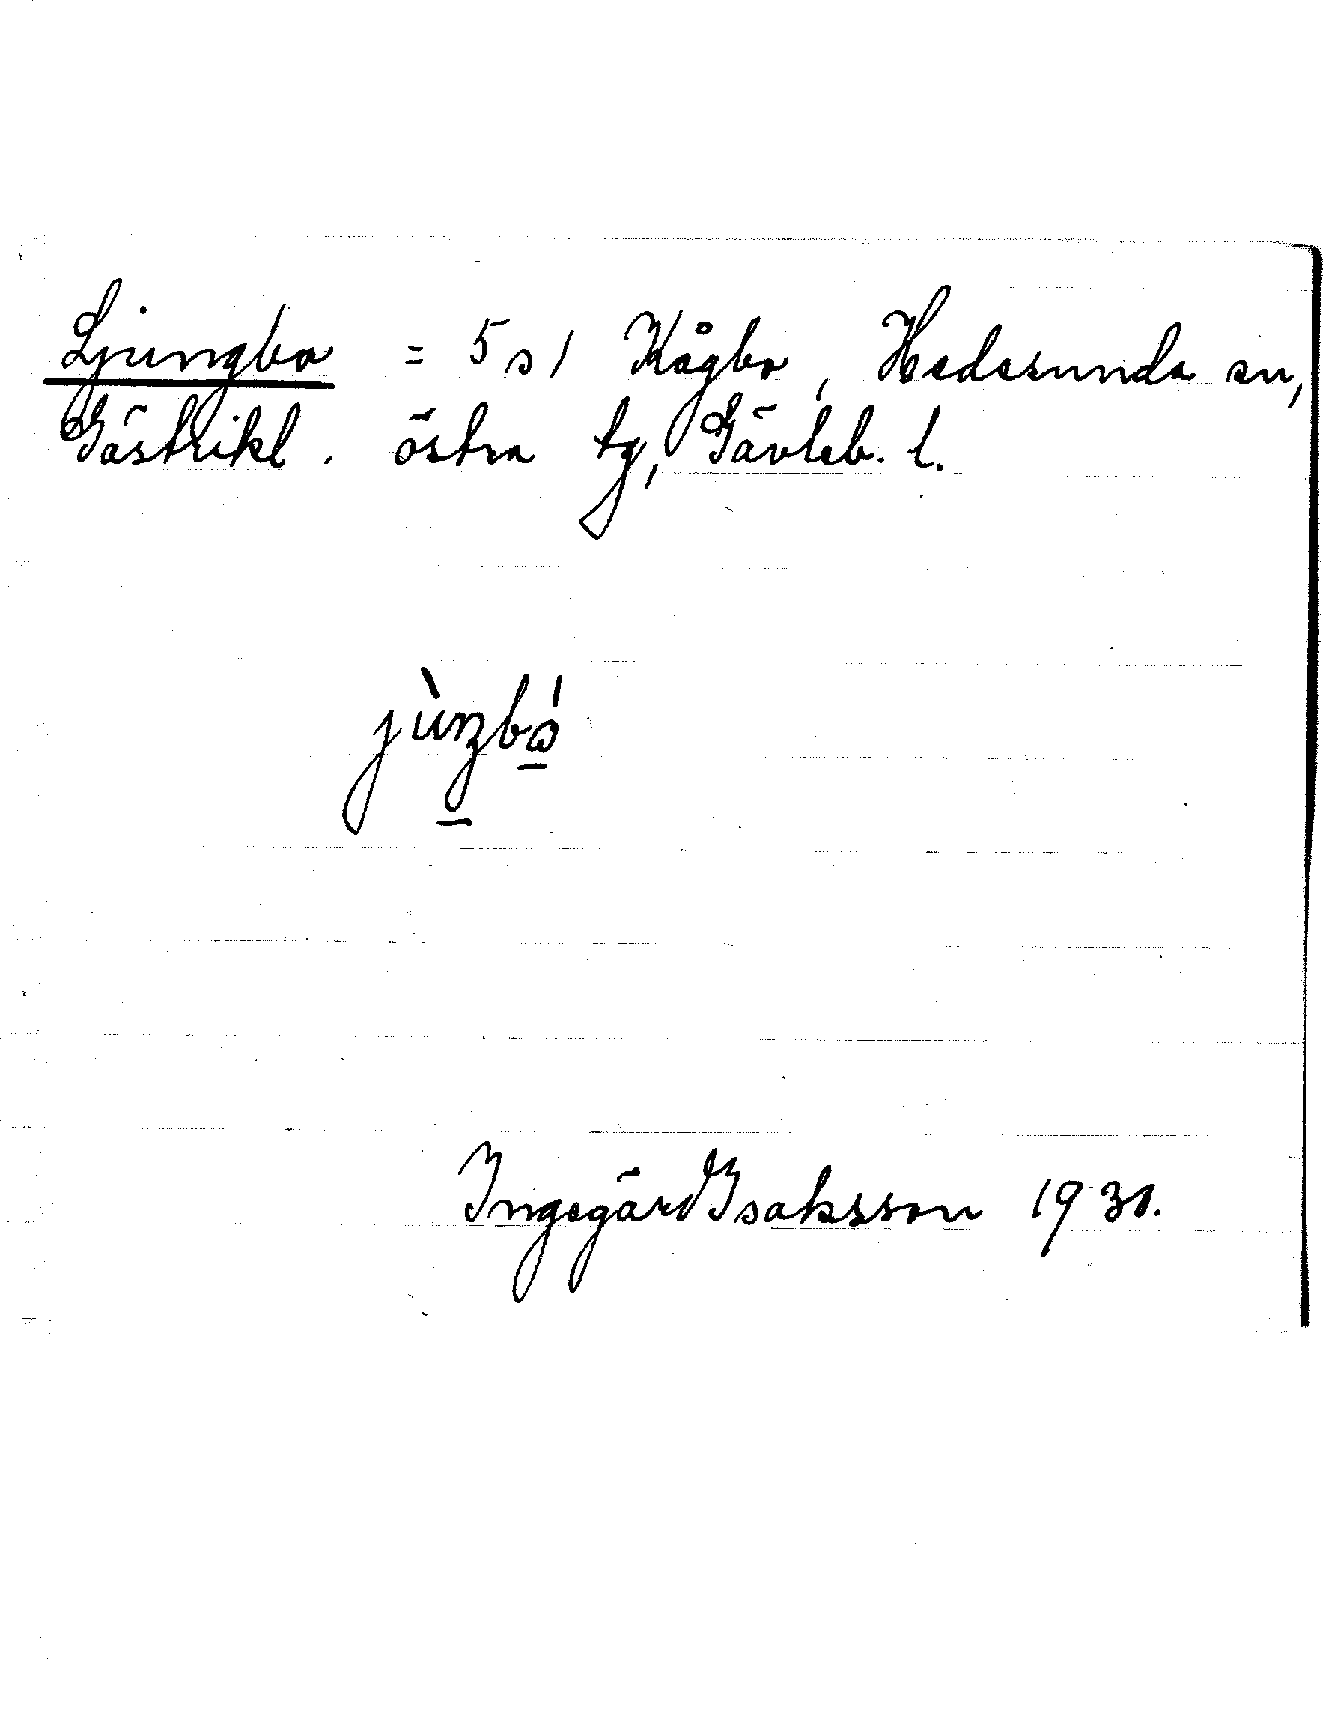 Ljungbo = 5 s 1 Kågbo, Hedesunda sn,
Gästrikl. östra tg, Gävleb. l.
jùŋbó
Ingegärd Isaksson 1930.